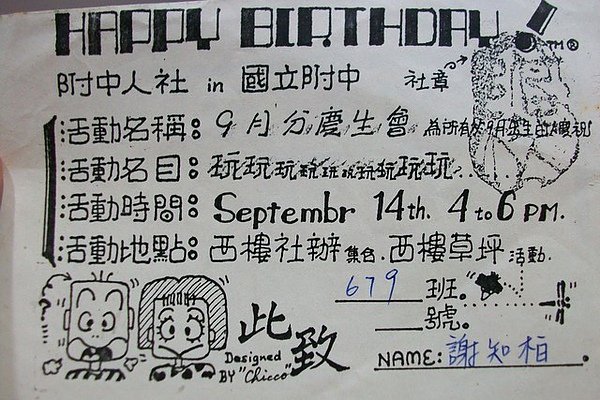 HAPPY BIRTHDAY TM®
附中人社 in 國立附中 社章
活動名稱: 9月分慶生會 為所有9月
活動名目: 玩玩玩玩玩玩玩玩玩玩...
活動時間: Septembr 14th. 4 to 6 PM.
活動地點: 西樓社辦 集合. 西樓草坪 活動.
679 班。
號。
此致
Designed BY "Chicco"
NAME: 謝知柏.